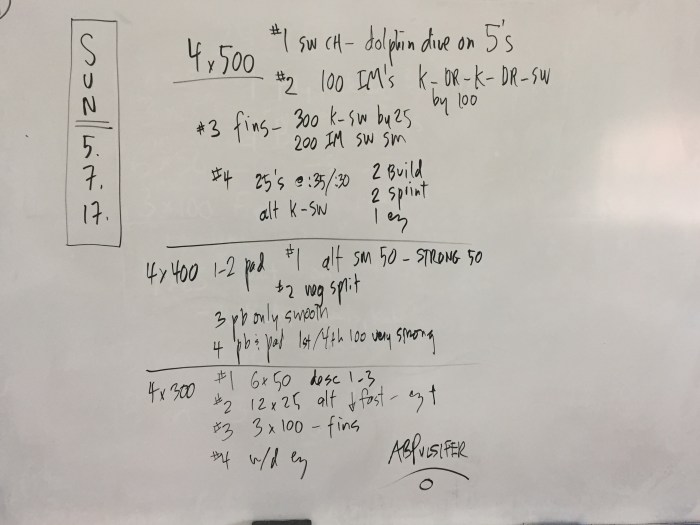 SUN
5.
7.
17.
4x500
#1 SW CH - dolphin dive on 5's
#2 100 IM's K-DR-K-DR-SW
by 100
#3 fins - 300 K-SW by 25
200 IM SW SM
#4 25's @:35/:30 2 Build
alt K-SW 2 sprint
1 ez
4x400 1-2 pad #1 alt SM 50 - STRONG 50
#2 neg split
3 pb only smooth
4 pb & pad 1st/4th 100 very strong
4x300 #1 6x50 desc 1-3
#2 12x25 alt ↓ fast - ez ↑
#3 3x100 - fins
#4 w/d ez
ABPULSIFER